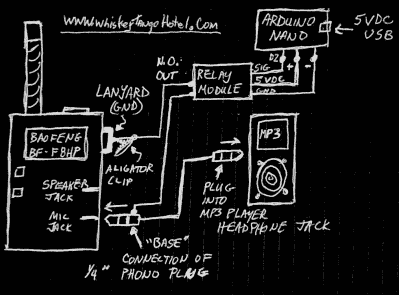 www.whiskeytangoHotel.Com
ARDUINO
NANO
5VDC
USB
N.O.
OUT
D2
SIG
+
-
5VDC
GND
RELAY
MODULE
LANYARD
(GND)
BAOFENG
BF-F8HP
ALIGATOR
CLIP
SPEAKER
JACK
MIC
JACK
MP3
PLUG
INTO
MP3 PLAYER
HEADPHONE JACK
"BASE"
CONNECTION OF
1/4" PHONO PLUG